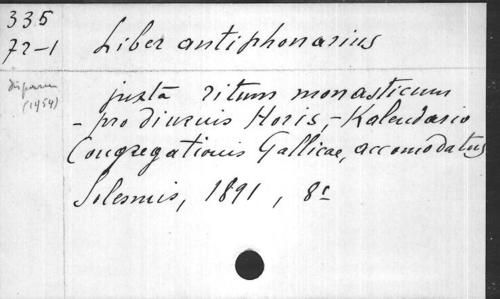 335
72-1
Liber antiphonarius
disparu
(1954)
juxta ritum monasticum
- pro diurnis Horis, - Kalendario
Congregationis Gallicae, accomodatus
Solesmis, 1891, 8º